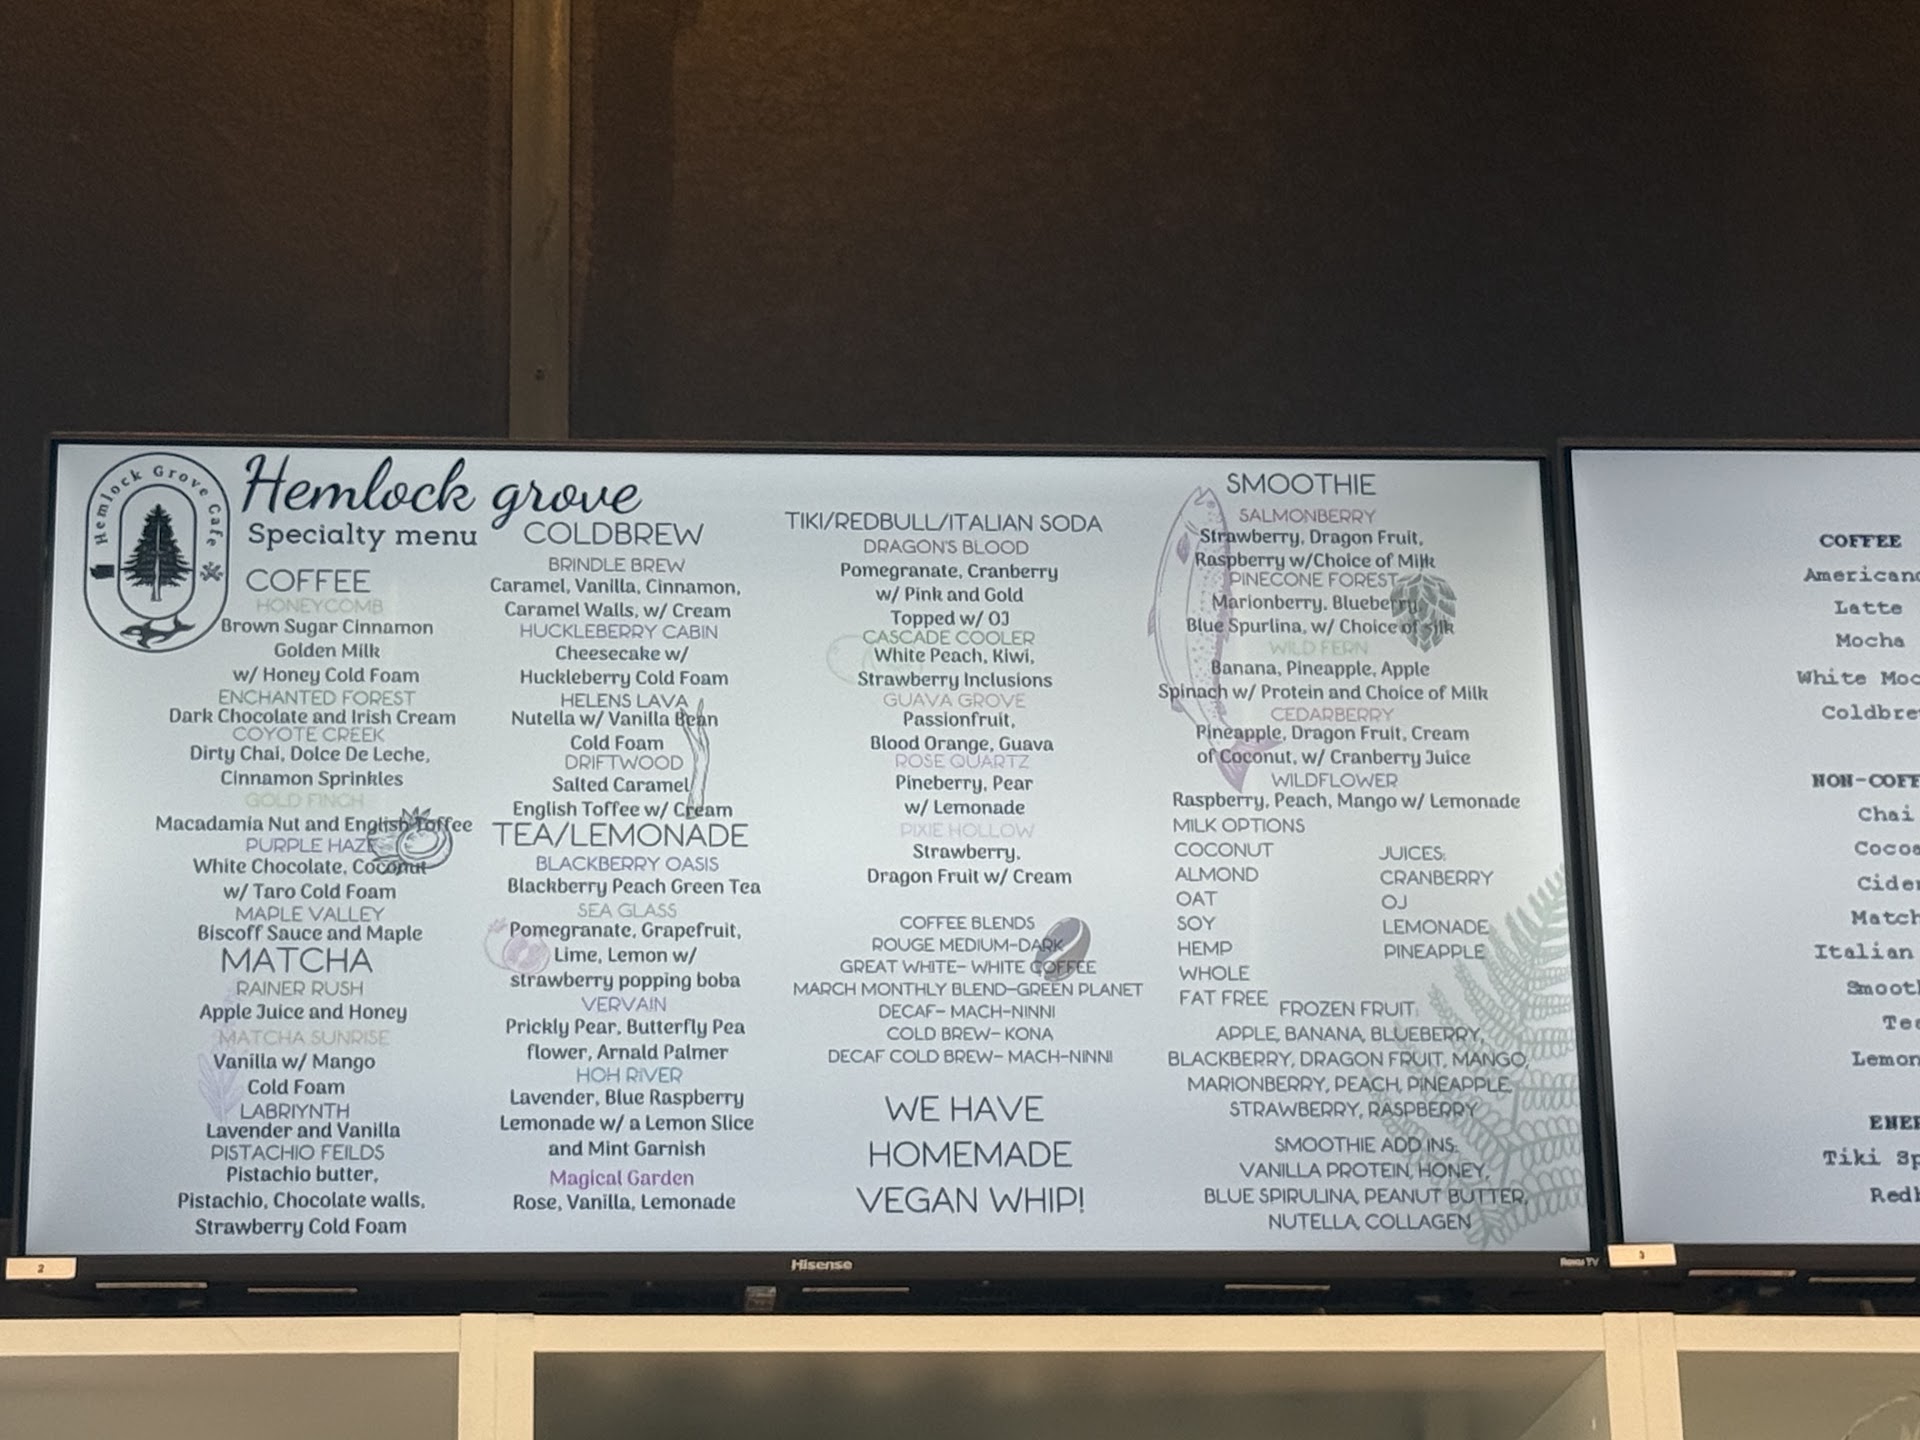 Hemlock Grove Cafe
Hemlock grove
Specialty menu
COFFEE
HONEYCOMB
Brown Sugar Cinnamon
Golden Milk
w/ Honey Cold Foam
ENCHANTED FOREST
Dark Chocolate and Irish Cream
COYOTE CREEK
Dirty Chai, Dolce De Leche,
Cinnamon Sprinkles
GOLD FINCH
Macadamia Nut and English Toffee
PURPLE HAZE
White Chocolate, Coconut
w/ Taro Cold Foam
MAPLE VALLEY
Biscoff Sauce and Maple
MATCHA
RAINER RUSH
Apple Juice and Honey
MATCHA SUNRISE
Vanilla w/ Mango
Cold Foam
LABRIYNTH
Lavender and Vanilla
PISTACHIO FEILDS
Pistachio butter,
Pistachio, Chocolate walls,
Strawberry Cold Foam
COLDBREW
BRINDLE BREW
Caramel, Vanilla, Cinnamon,
Caramel Walls, w/ Cream
HUCKLEBERRY CABIN
Cheesecake w/
Huckleberry Cold Foam
HELENS LAVA
Nutella w/ Vanilla Bean
Cold Foam
DRIFTWOOD
Salted Caramel
English Toffee w/ Cream
TEA/LEMONADE
BLACKBERRY OASIS
Blackberry Peach Green Tea
SEA GLASS
Pomegranate, Grapefruit,
Lime, Lemon w/
strawberry popping boba
VERVAIN
Prickly Pear, Butterfly Pea
flower, Arnald Palmer
HOH RIVER
Lavender, Blue Raspberry
Lemonade w/ a Lemon Slice
and Mint Garnish
Magical Garden
Rose, Vanilla, Lemonade
TIKI/REDBULL/ITALIAN SODA
DRAGON'S BLOOD
Pomegranate, Cranberry
w/ Pink and Gold
Topped w/ OJ
CASCADE COOLER
White Peach, Kiwi,
Strawberry Inclusions
GUAVA GROVE
Passionfruit,
Blood Orange, Guava
ROSE QUARTZ
Pineberry, Pear
w/ Lemonade
PIXIE HOLLOW
Strawberry,
Dragon Fruit w/ Cream
COFFEE BLENDS
ROUGE MEDIUM-DARK
GREAT WHITE- WHITE COFFEE
MARCH MONTHLY BLEND-GREEN PLANET
DECAF- MACH-NINNI
COLD BREW- KONA
DECAF COLD BREW- MACH-NINNI
WE HAVE
HOMEMADE
VEGAN WHIP!
SMOOTHIE
SALMONBERRY
Strawberry, Dragon Fruit,
Raspberry w/Choice of Milk
PINECONE FOREST
Marionberry, Blueberry,
Blue Spurlina, w/ Choice of silk
WILD FERN
Banana, Pineapple, Apple
Spinach w/ Protein and Choice of Milk
CEDARBERRY
Pineapple, Dragon Fruit, Cream
of Coconut, w/ Cranberry Juice
WILDFLOWER
Raspberry, Peach, Mango w/ Lemonade
MILK OPTIONS
COCONUT
ALMOND
OAT
SOY
HEMP
WHOLE
FAT FREE
JUICES:
CRANBERRY
OJ
LEMONADE
PINEAPPLE
FROZEN FRUIT:
APPLE, BANANA, BLUEBERRY,
BLACKBERRY, DRAGON FRUIT, MANGO,
MARIONBERRY, PEACH, PINEAPPLE,
STRAWBERRY, RASPBERRY
SMOOTHIE ADD INS:
VANILLA PROTEIN, HONEY,
BLUE SPIRULINA, PEANUT BUTTER,
NUTELLA, COLLAGEN
2
Hisense
Roku TV
3
COFFEE
American
Latte
Mocha
White Moc
Coldbre
NON-COFF
Chai
Cocoa
Cider
Match
Italian
Smoot
Tea
Lemon
ENER
Tiki Sp
Redb